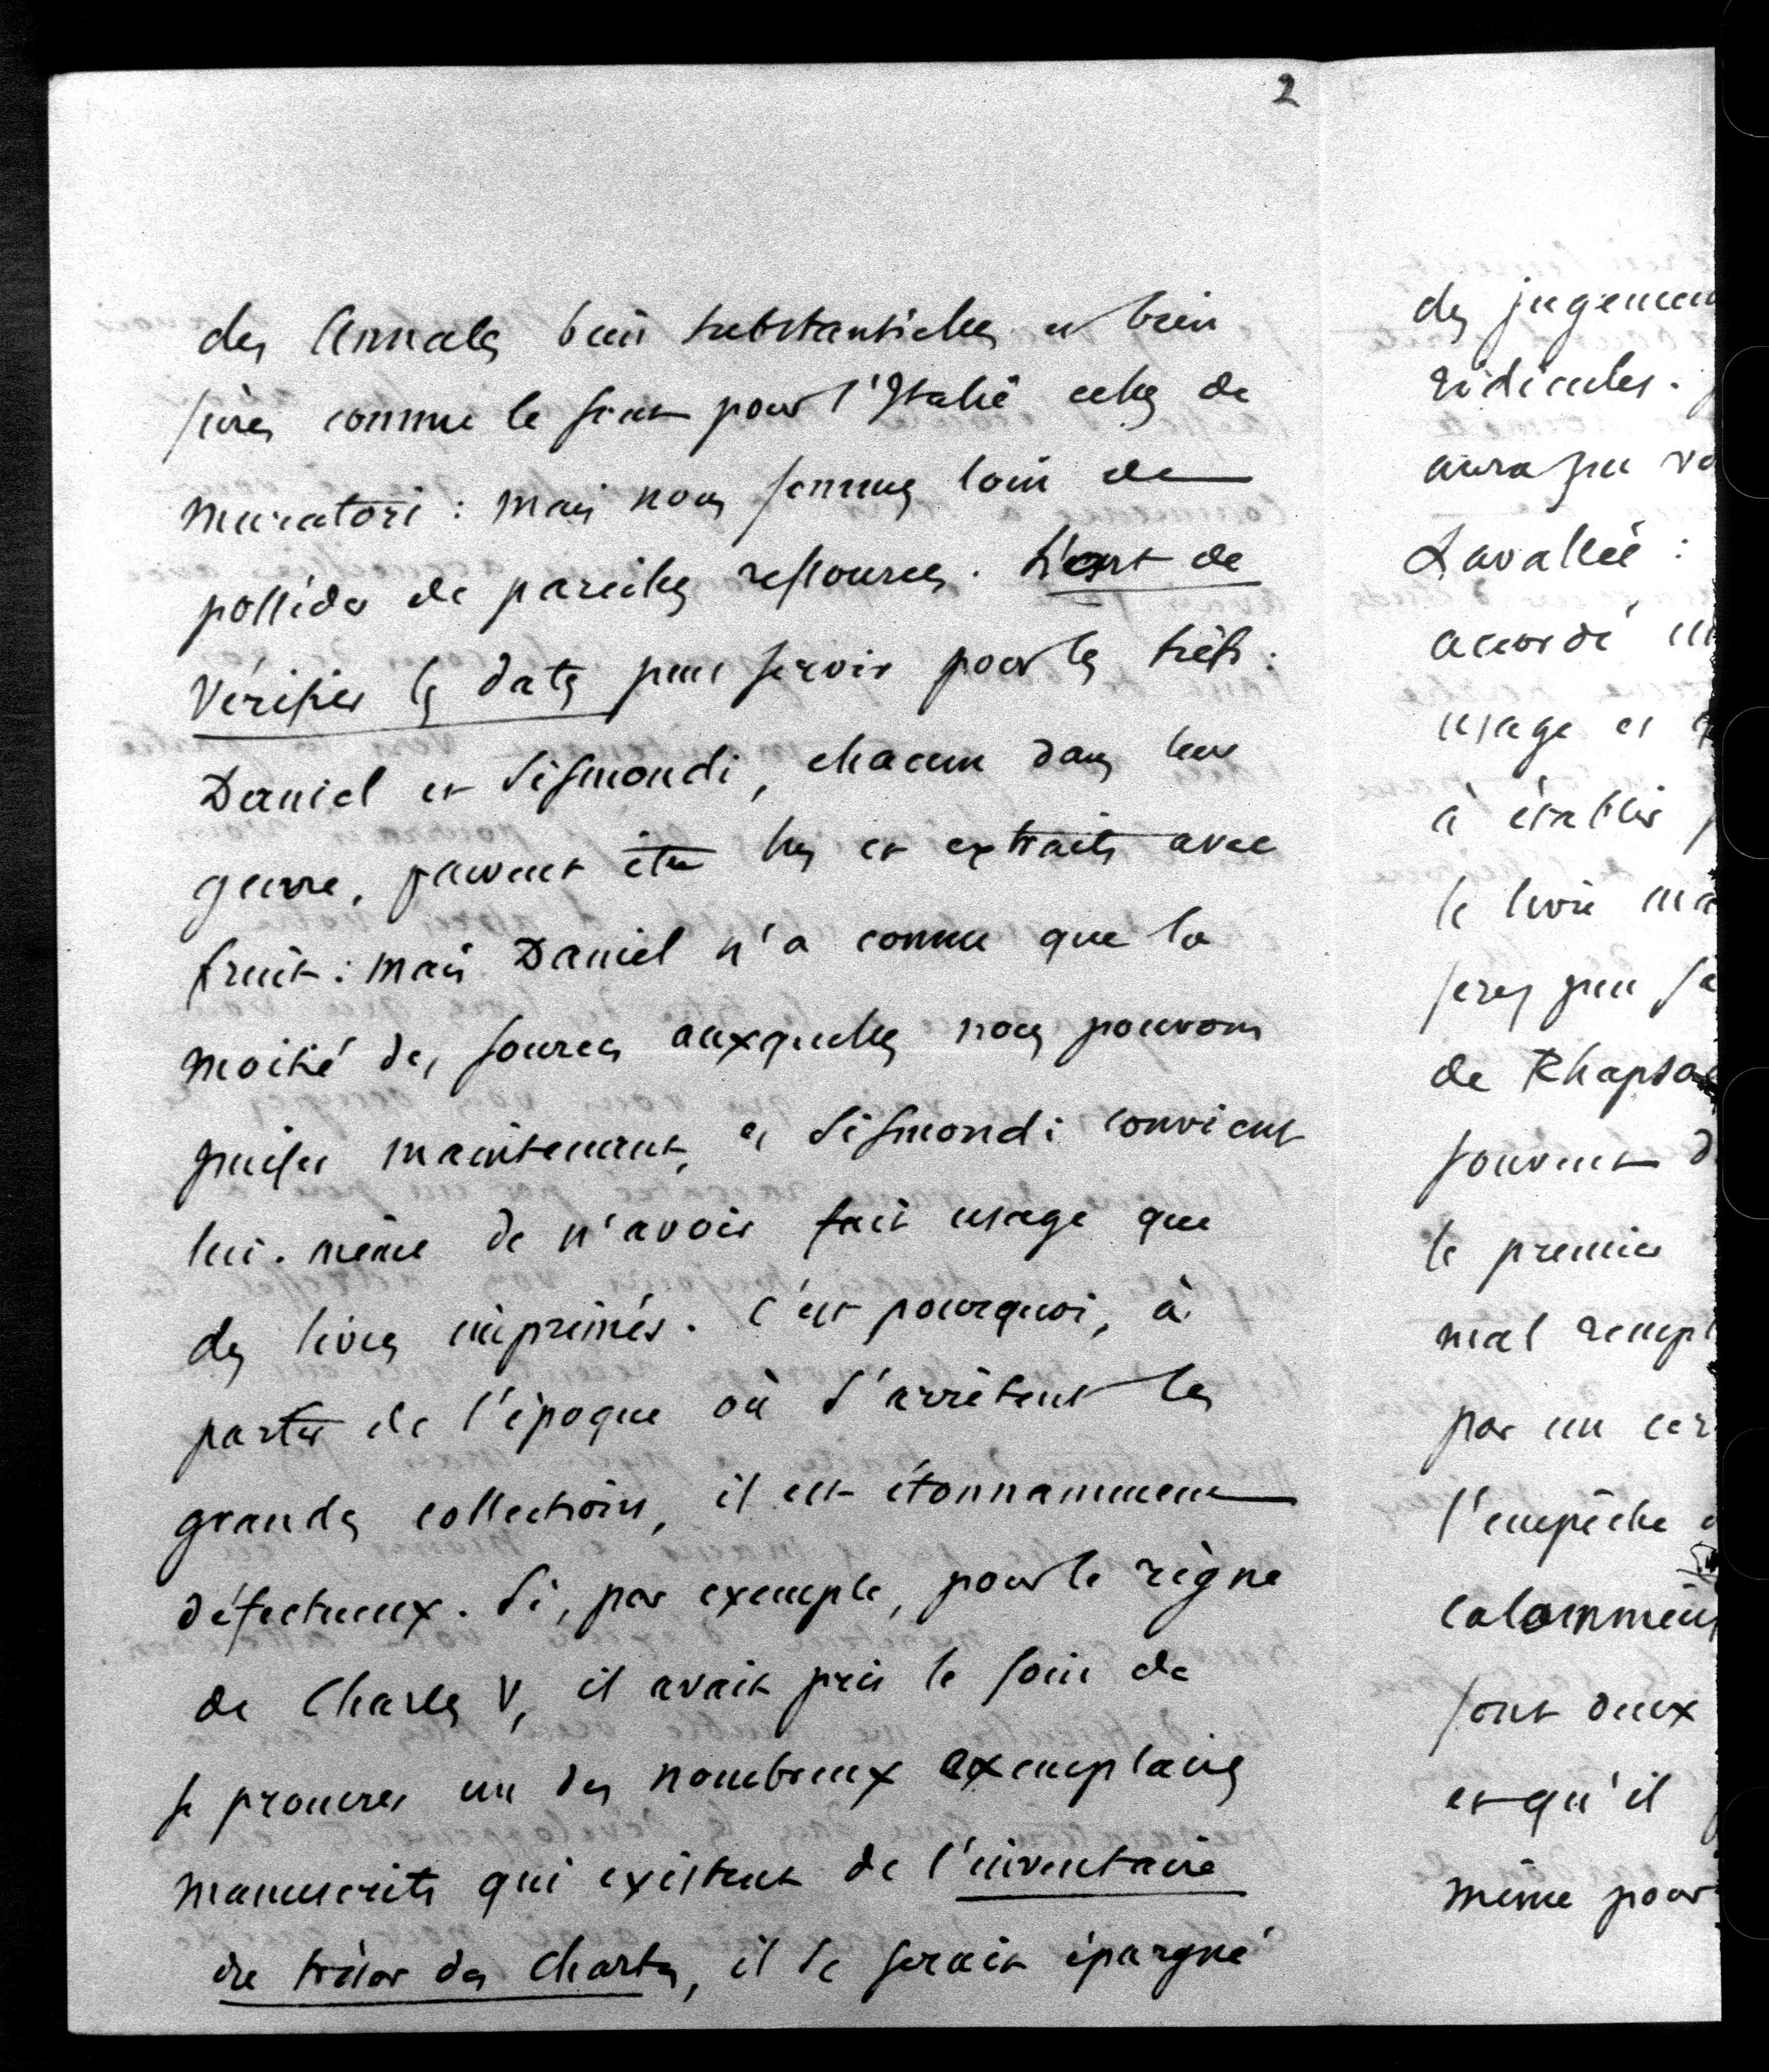 2
des Annales bien substantielles et bien
sûres comme le sont pour l'Italie celles de
Muratori : mais nous sommes loin de
posséder de pareilles ressources. L'art de
Vérifier les dates peut servir pour les fiefs :
Daniel et Sismondi, chacun dans leur
genre, peuvent être lus et extraits avec
fruit : mais Daniel n'a connu que la
moitié des sources auxquelles nous pouvons
puiser maintenant, et Sismondi convient
lui-même de n'avoir fait usage que
des livres imprimés. C'est pourquoi, à
partir de l'époque où s'arrêtent les
grandes collections, il est étonnamment
défectueux. Si, par exemple, pour le règne
de Charles V, il avait pris le soin de
se procurer un des nombreux exemplaires
manuscrits qui existent de l'inventaire
du trésor des Chartes, il se serait épargné
des jugemen
ridicules.
aura pu vo
Lavallée :
accordé un
usage et
à établir
le livre ma
serez peu
de Rhapso
souvent d
le premier
mal rempl
par un cer
l'empêche
calomnieu
sont deux
et qu'il
même pour